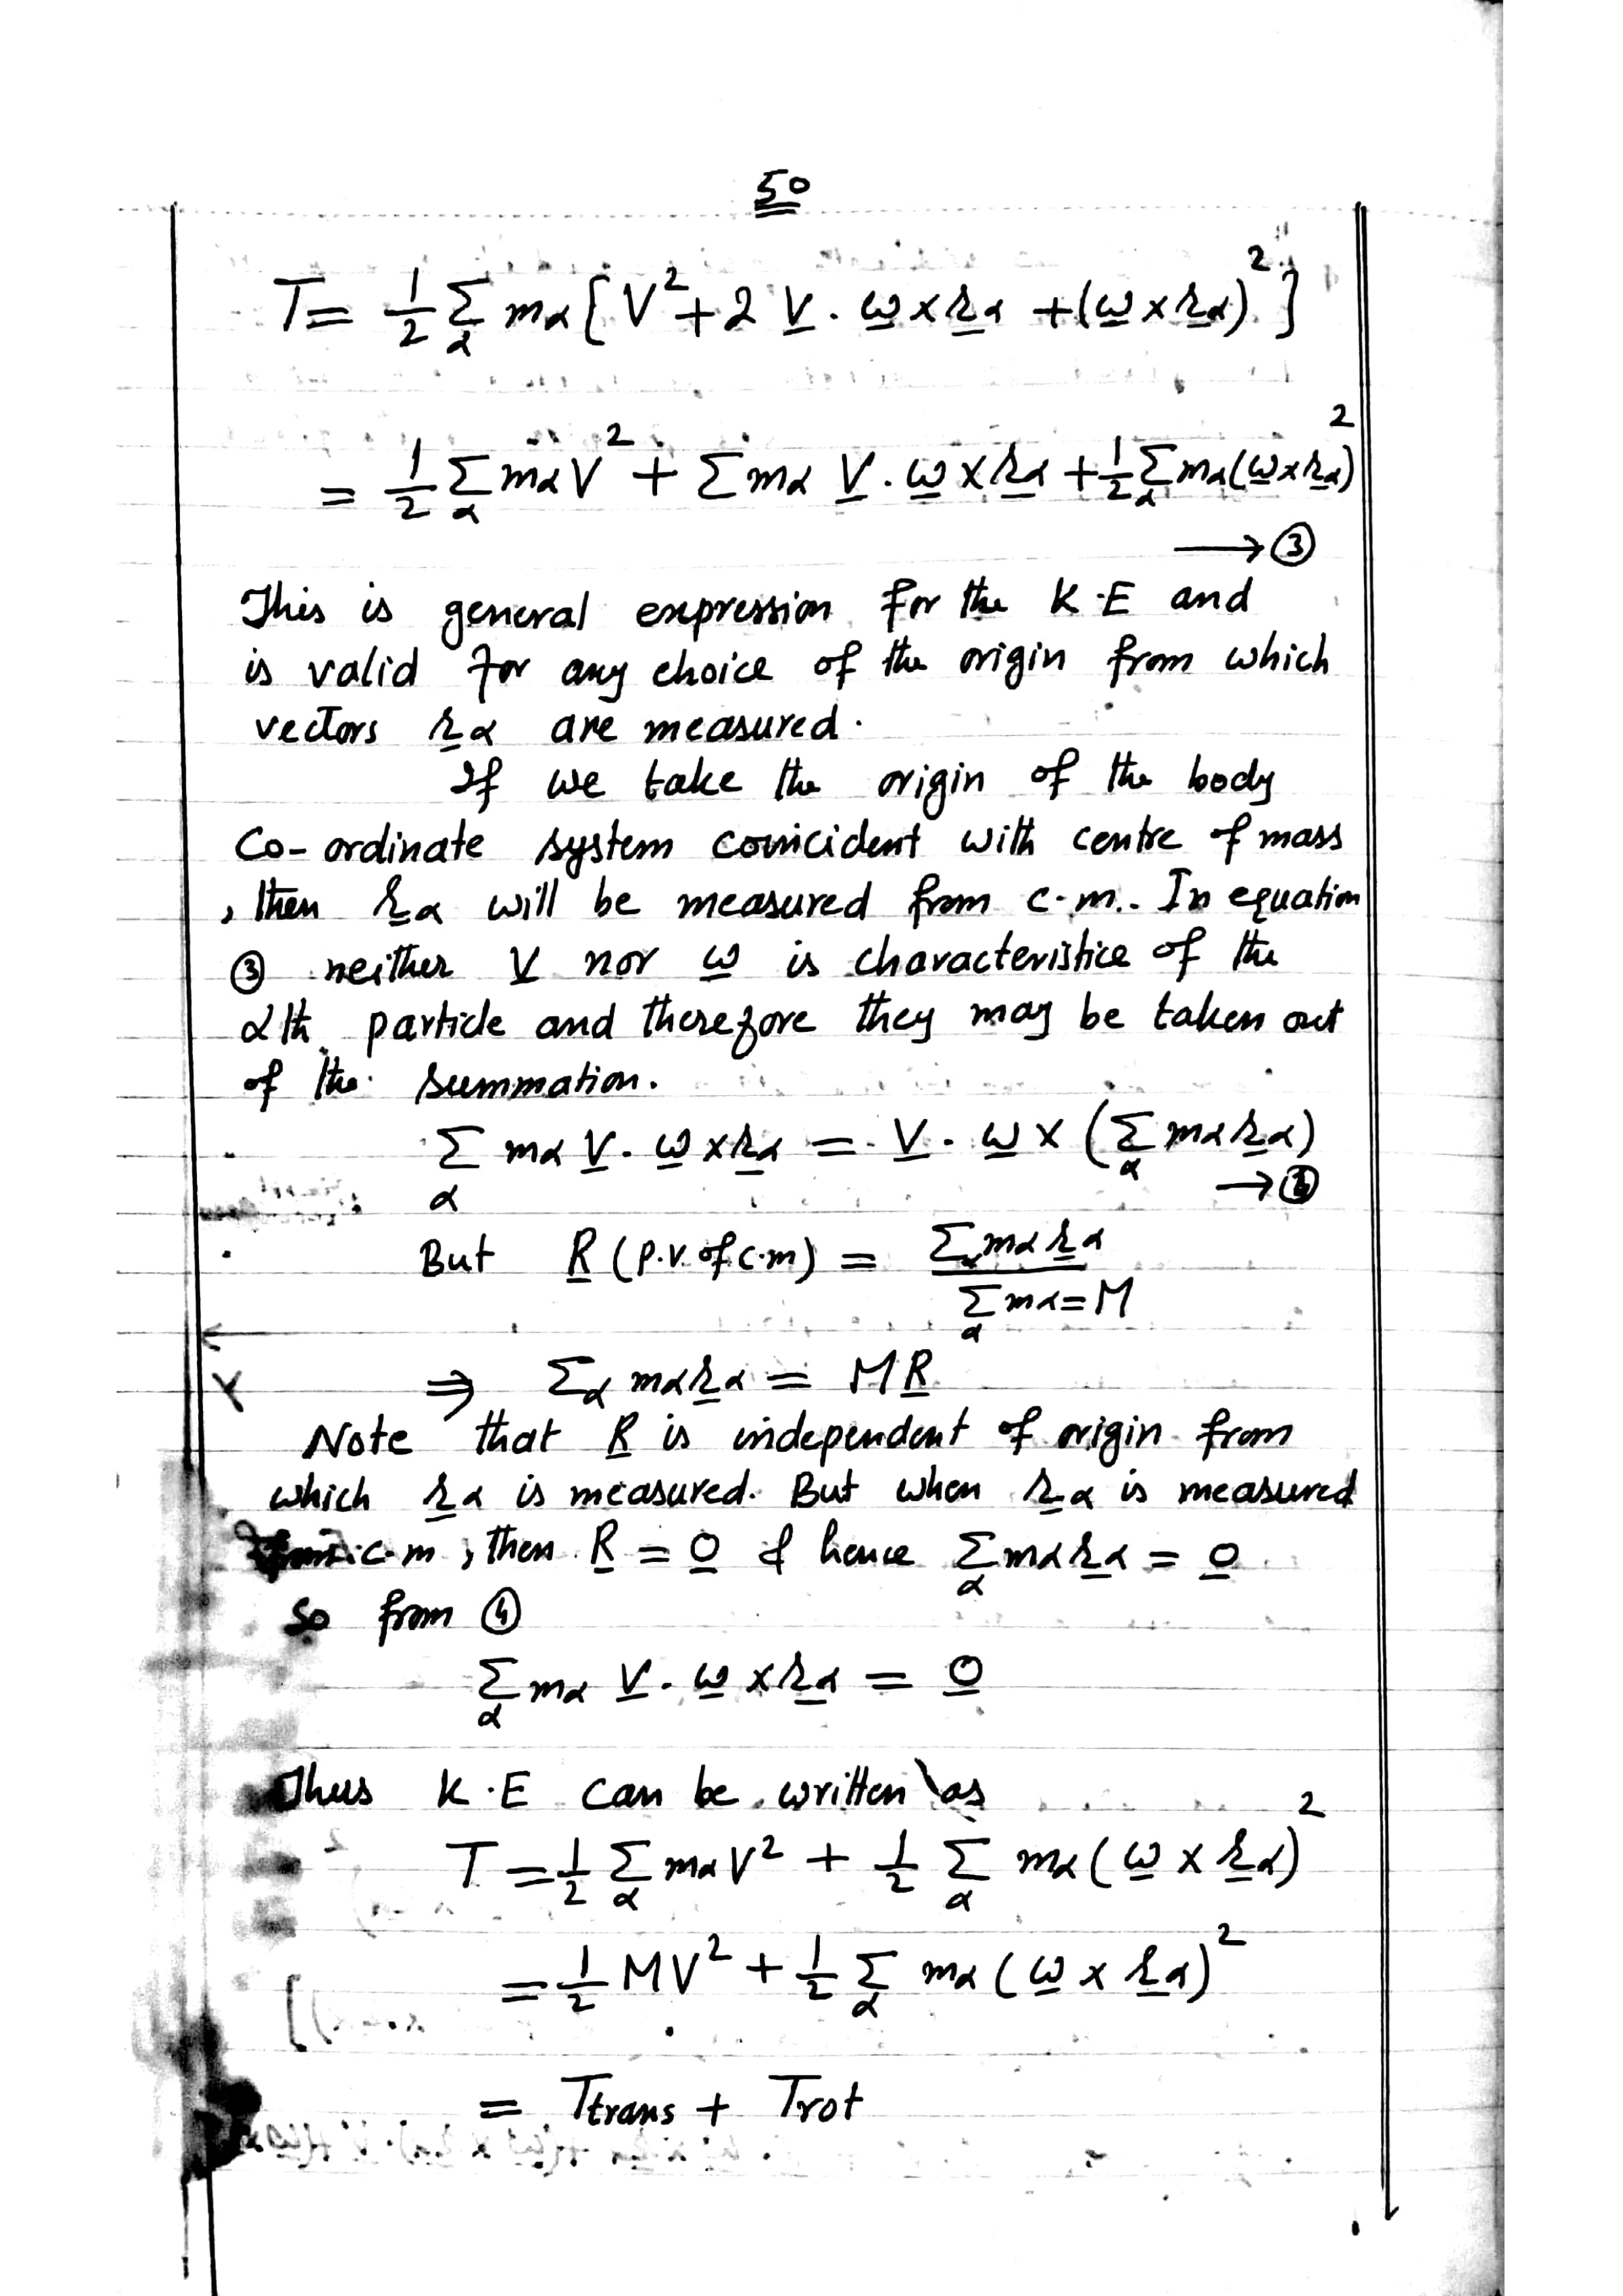 50
T = 1/2 Σ_α mα { V² + 2 V̲ . ω̲ x r̲α + (ω̲ x r̲α)² }
= 1/2 Σ_α mα V² + Σ mα V̲ . ω̲ x r̲α + 1/2 Σ_α mα (ω̲ x r̲α)²
→ ③
This is general expression for the K.E and
is valid for any choice of the origin from which
vectors r̲α are measured.
If we take the origin of the body
Co-ordinate system coincident with centre of mass
, then r̲α will be measured from c.m.. In equation
③ neither V̲ nor ω̲ is characteristice of the
αth particle and therefore they may be taken out
of the summation.
Σ_α mα V̲ . ω̲ x r̲α = V̲ . ω̲ x (Σ_α mα r̲α)
→ ④
But R̲ (p.v. of c.m) = Σ_α mα r̲α / Σ_α mα = M
⇒ Σ_α mα r̲α = M R̲
Note that R̲ is independent of origin from
which r̲α is measured. But when r̲α is measured
from c.m, then R̲ = 0̲ & hence Σ_α mα r̲α = 0̲
So from ④
Σ_α mα V̲ . ω̲ x r̲α = 0̲
Thus K.E can be written as
T = 1/2 Σ_α mα V² + 1/2 Σ_α mα (ω̲ x r̲α)²
= 1/2 MV² + 1/2 Σ_α mα (ω̲ x r̲α)²
= Ttrans + Trot